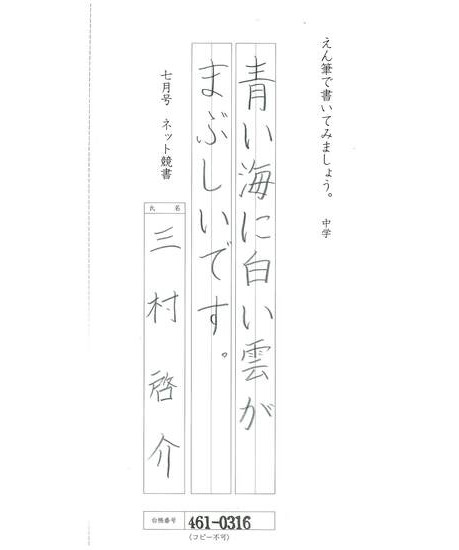 えん筆で書いてみましょう。 中学
青い海に白い雲が
まぶしいです。
七月号 ネット競書
氏名
三村啓介
台帳番号 461-0316
(コピー不可)